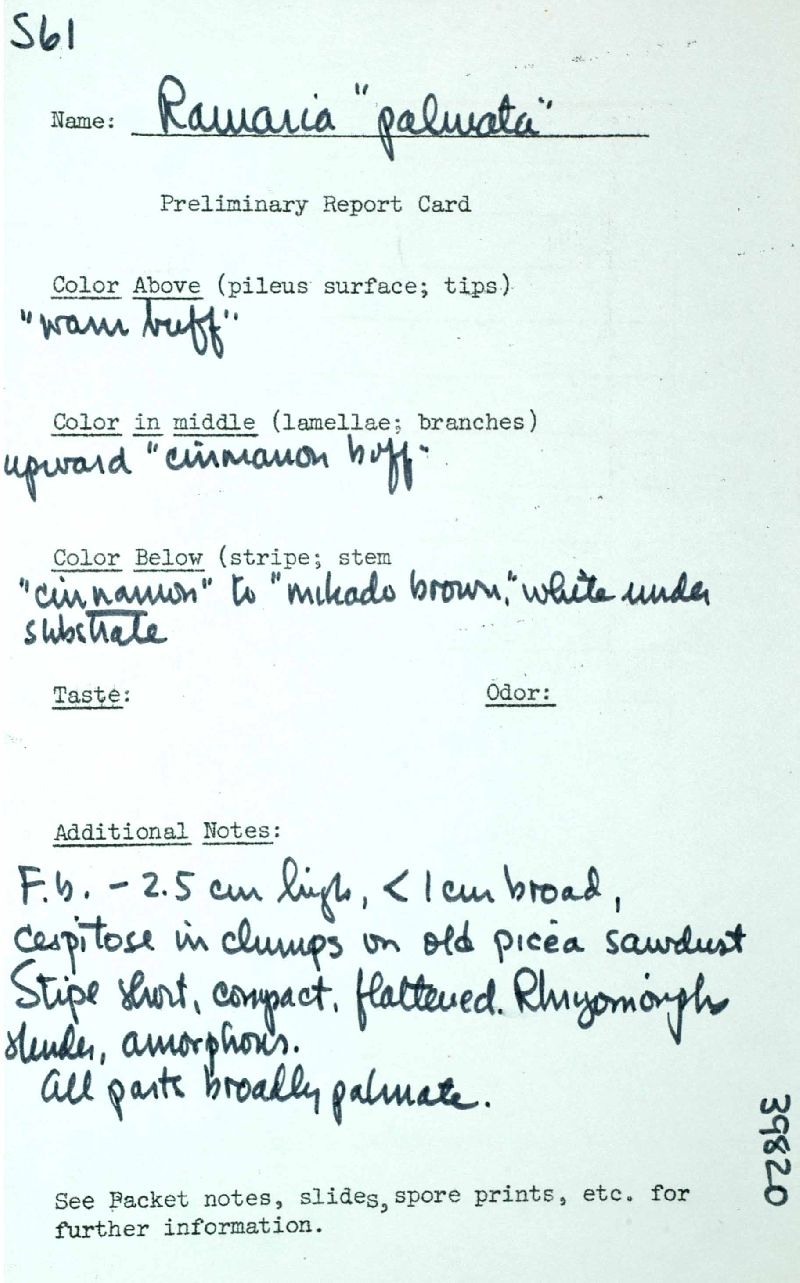 S61
Name: Ramaria "palmata"
Preliminary Report Card
Color Above (pileus surface; tips)
"warm buff"
Color in middle (lamellae; branches)
upward "cinnamon buff"
Color Below (stripe; stem
"cinnamon" to "mikado brown," white under
substrate
Taste: Odor:
Additional Notes:
F.b. - 2.5 cm high, < 1 cm broad,
cespitose in clumps on old picea sawdust
Stipe short, compact, flattened. Rhizomorphs
slender, amorphous.
All parts broadly palmate.
39820
See Packet notes, slides, spore prints, etc. for
further information.